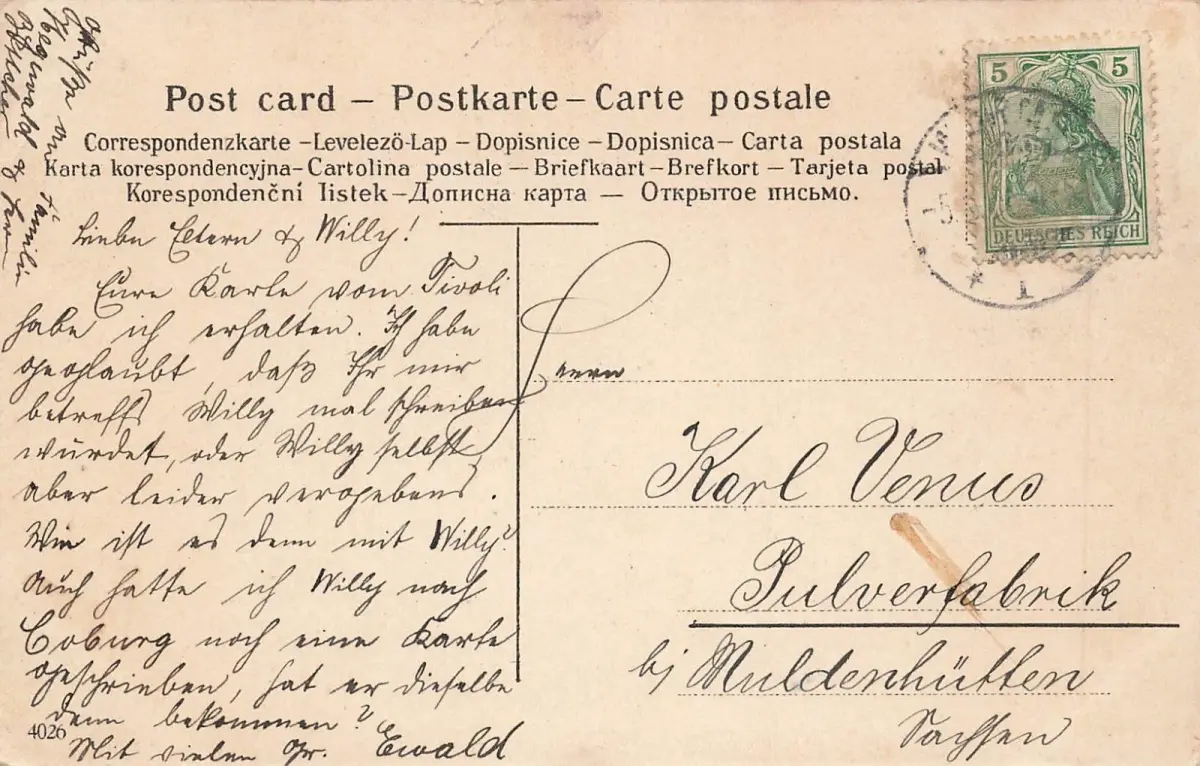 Post card – Postkarte – Carte postale
Correspondenzkarte – Levelező-Lap – Dopisnice – Dopisnica – Carta postala
Karta korespondencyjna – Cartolina postale – Briefkaart – Brefkort – Tarjeta postal
Korespondenční lístek – Дописна карта — Открытое письмо.
5 5
DEUTSCHES REICH
* 1
Grüße an Familie
Liebe Eltern & Willy!
Eure Karte vom Tivoli
habe ich erhalten. Ich habe
geglaubt, daß Ihr mir
betreffs Willy mal schreiben
würdet, oder Willy selbst,
aber leider vergebens.
Wie ist es denn mit Willy?
Auch hatte ich Willy nach
Coburg noch eine Karte
geschrieben, hat er dieselbe
denn bekommen?
Mit vielen Gr. Ewald
4026
Herrn
Karl Venus
Pulverfabrik
bj Muldenhütten
Sachsen